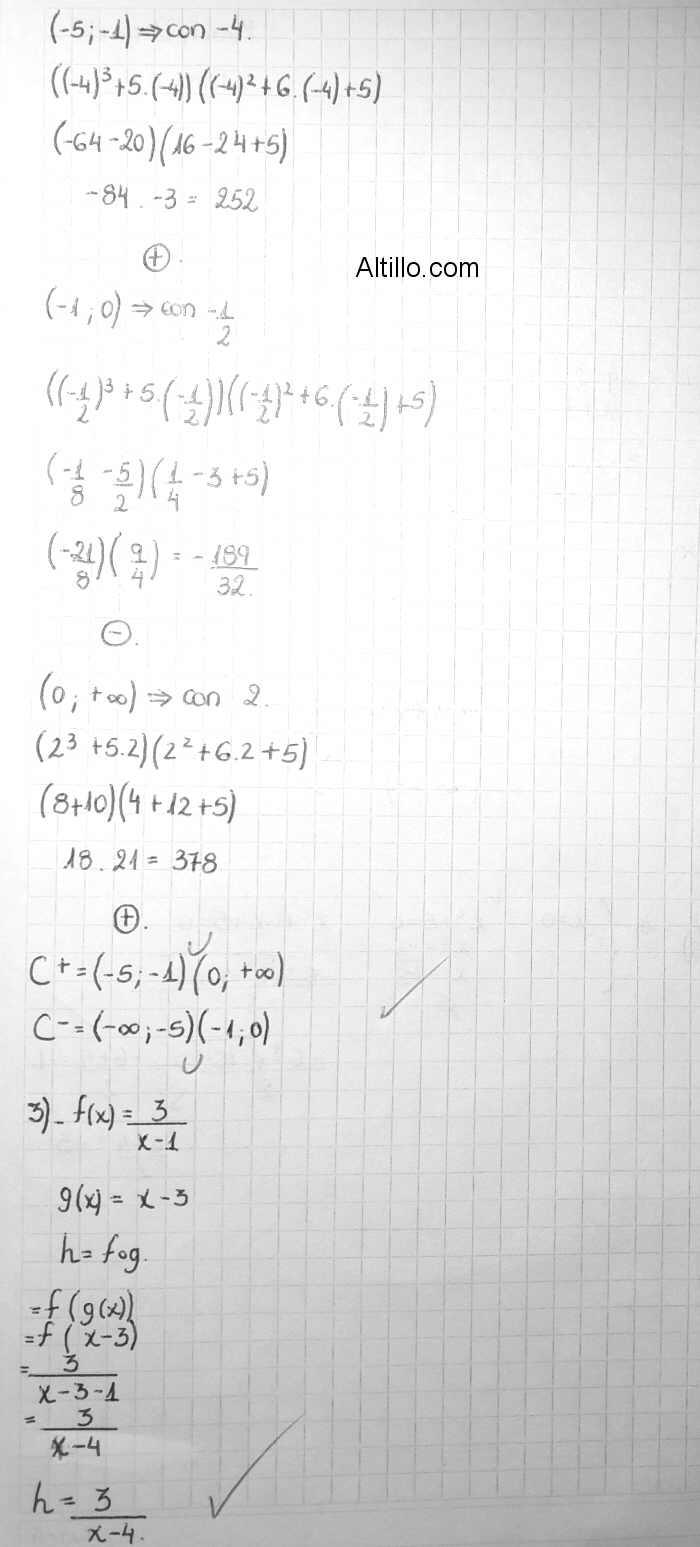 (-5;-1) ⇒ con -4.
((-4)³+5.(-4)) ((-4)²+6.(-4)+5)
(-64-20)(16-24+5)
-84 . -3 = 252
⊕.
Altillo.com
(-1;0) ⇒ con -1/2
((-1/2)³+5.(-1/2))((-1/2)²+6.(-1/2)+5)
(-1/8 -5/2)(1/4 -3+5)
(-21/8)(9/4) = -189/32.
⊖.
(0; +∞) ⇒ con 2.
(2³ +5.2)(2²+6.2+5)
(8+10)(4+12+5)
18.21 = 378
⊕.
C⁺=(-5;-1)∪(0;+∞)
C⁻=(-∞;-5)∪(-1;0)
3)- f(x)= 3/x-1
g(x) = x-3
h= fog.
=f(g(x))
=f( x-3)
= 3/x-3-1
= 3/x-4
h = 3/x-4.